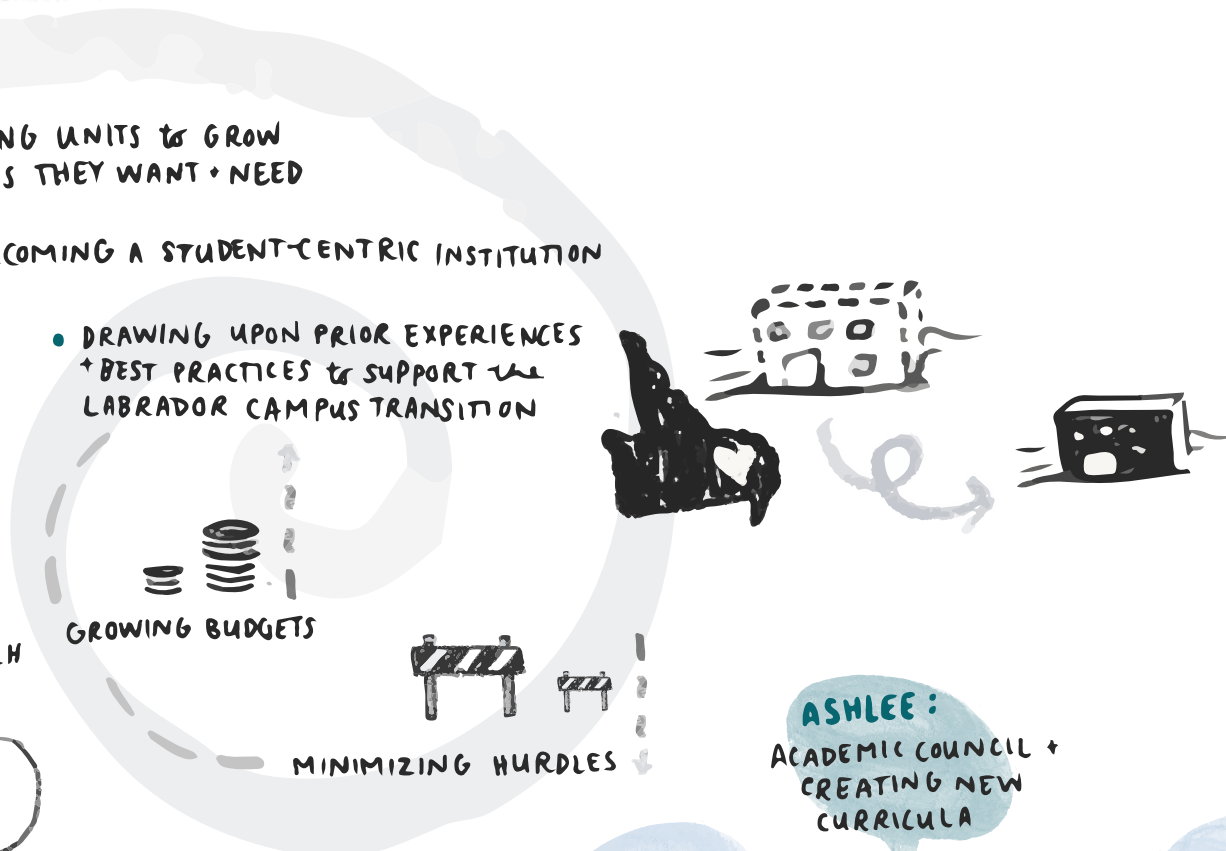 NG UNITS to GROW
S THEY WANT + NEED
COMING A STUDENT-CENTRIC INSTITUTION
• DRAWING UPON PRIOR EXPERIENCES
+ BEST PRACTICES to SUPPORT the
LABRADOR CAMPUS TRANSITION
GROWING BUDGETS
H
MINIMIZING HURDLES
ASHLEE:
ACADEMIC COUNCIL +
CREATING NEW
CURRICULA